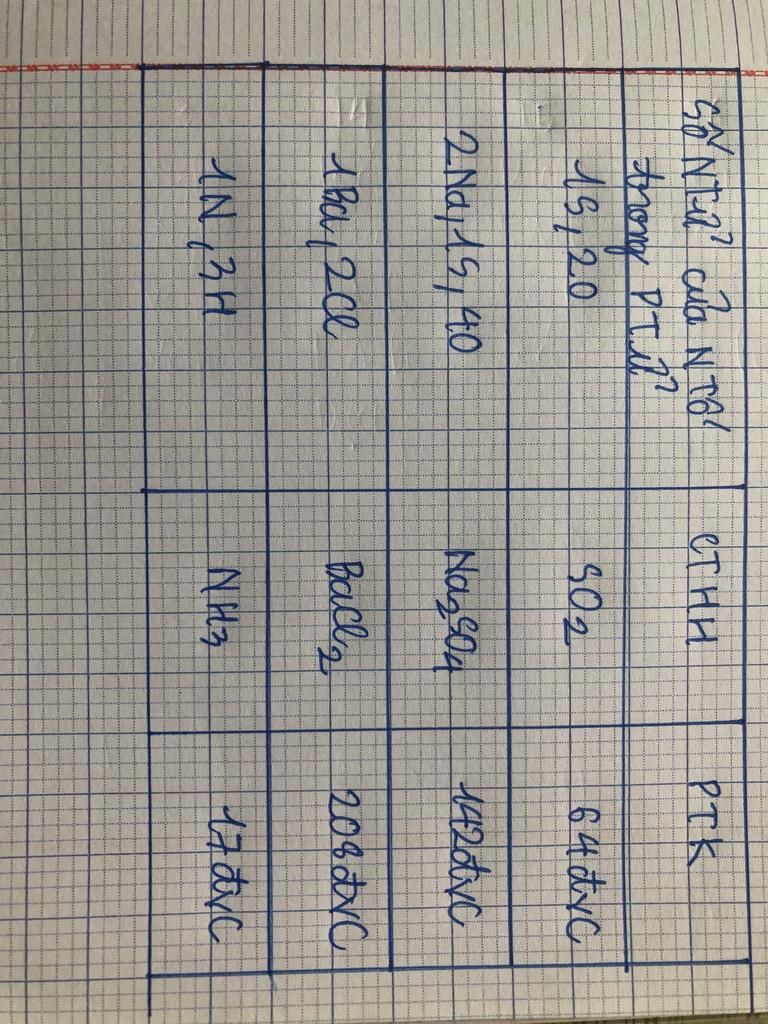 Số NTử của NTố
trong PTử
CTHH
PTK
1S, 2O
SO2
64đvC
2Na, 1S, 4O
Na2SO4
142đvC
1Ba, 2Cl
BaCl2
208đvC
1N, 3H
NH3
17đvC